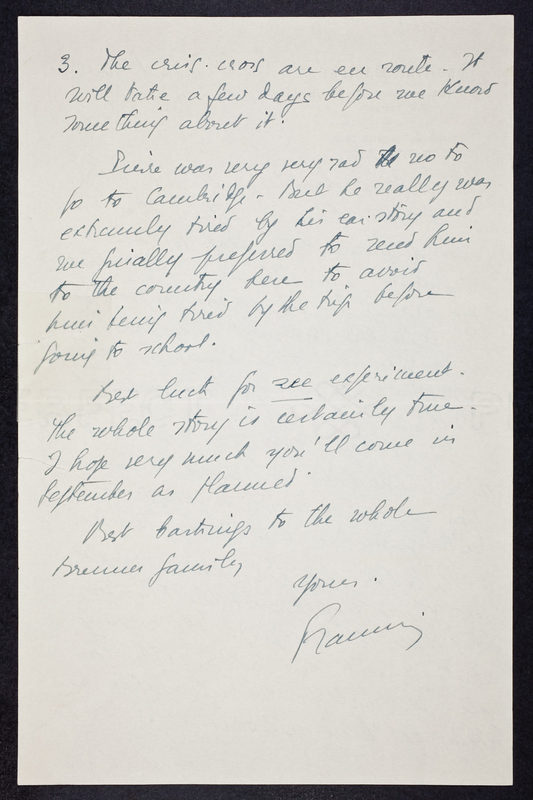 3. The criss-cross are en route - It
will take a few days before we know
something about it.
Pierre was very very sad no to
go to Cambridge - But he really was
extremely tired by his ear story and
we finally preferred to send him
to the country here to avoid
him being tired by the trip before
going to school.
Best luck for experiment.
The whole story is certainly true -
I hope very much you'll come in
September as planned.
Best to the whole
Brenner family
Yours.